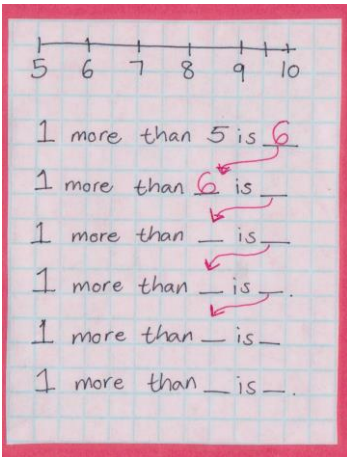 5 6 7 8 9 10
1 more than 5 is 6
1 more than 6 is _
1 more than _ is _
1 more than _ is _.
1 more than _ is _
1 more than _ is _.